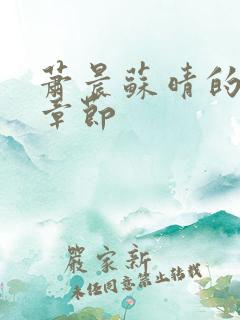 萧晨蘇晴的
章節
嚴家新
未经同意禁止转载